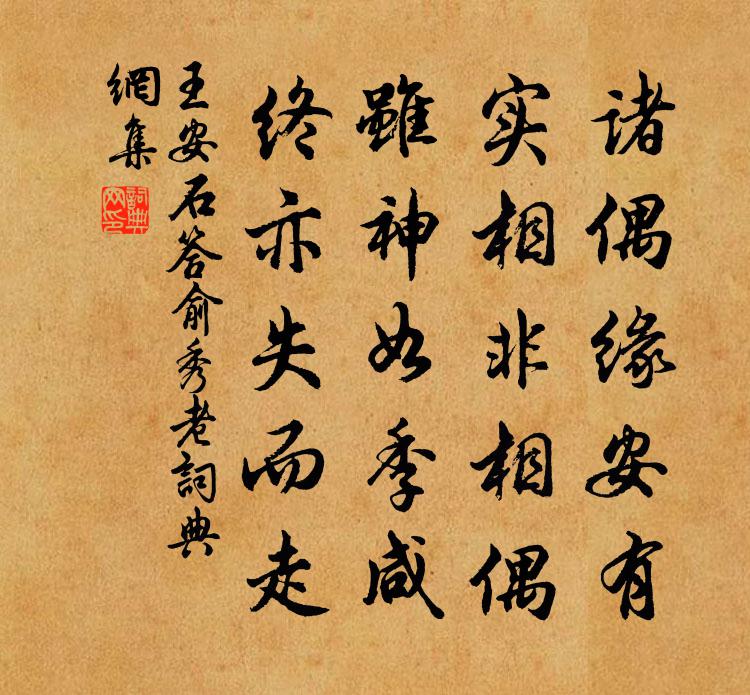 诸偶缘安有
实相非相偶
雖神如季咸
终亦失而走
王安石答俞秀老詞典
網集
詞典
网印